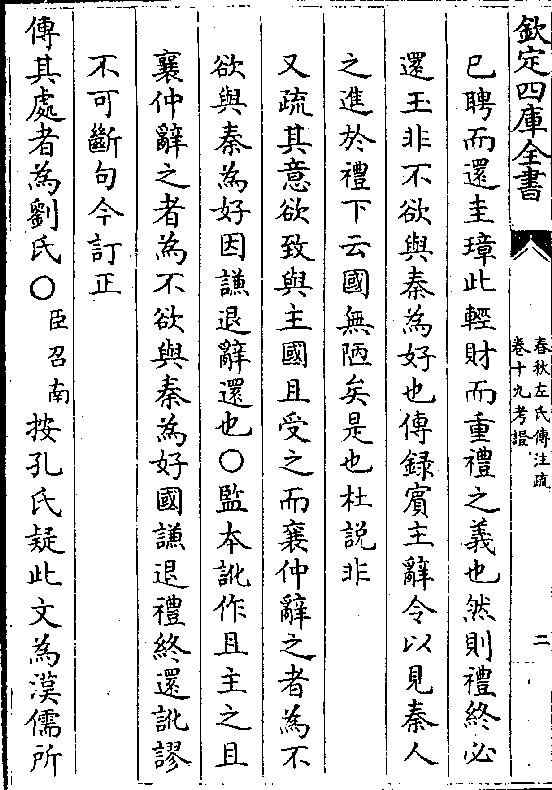 欽定四庫全書
春秋左氏傳注疏
卷十九考證
二
已聘而還圭璋此輕財而重禮之義也然則禮終必
還玉非不欲與秦為好也傳録賓主辭令以見秦人
之進於禮下云國無陋矣是也杜説非
又疏其意欲致與主國且受之而襄仲辭之者為不
欲與秦為好因謙退辭還也〇監本訛作且主之且
襄仲辭之者為不欲與秦為好國謙退禮終還訛謬
不可斷句今訂正
傳其處者為劉氏〇臣召南按孔氏疑此文為漢儒所